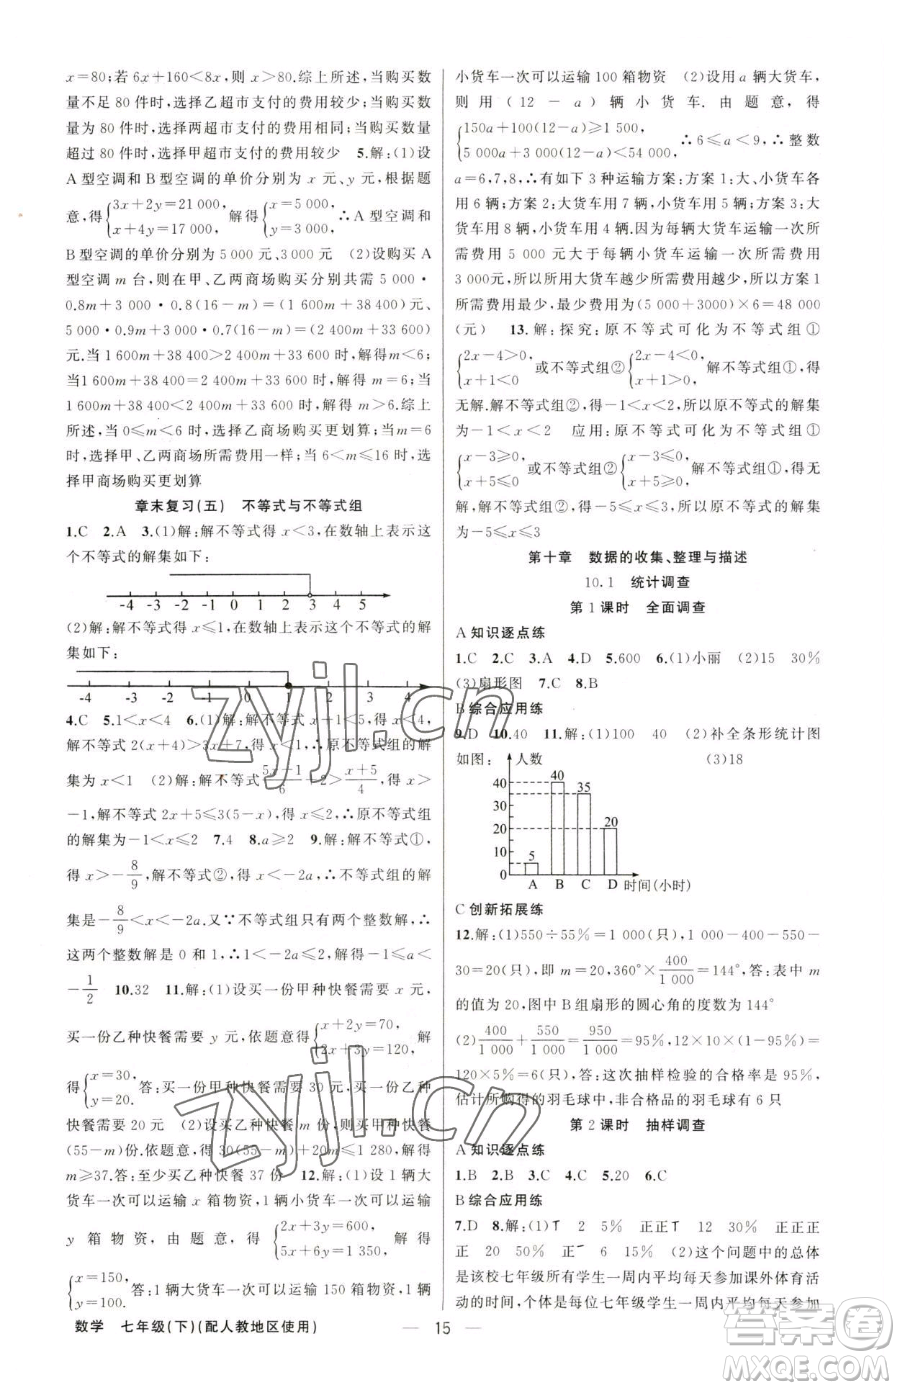 x=80;若 6x+160<8x,则 x>80.综上所述,当购买数
量不足 80 件时,选择乙超市支付的费用较少;当购买数
量为 80 件时,选择两超市支付的费用相同;当购买数量
超过 80 件时,选择甲超市支付的费用较少 5.解:(1)设
A 型空调和 B 型空调的单价分别为 x 元、y 元,根据题
意,得{3x+2y=21 000, x+4y=17 000, 解得{x=5 000, y=3 000. ∴A 型空调和
B 型空调的单价分别为 5 000 元、3 000 元 (2)设购买 A
型空调 m 台,则在甲、乙两商场购买分别共需 5 000·
0.8m+3 000·0.8(16-m)=(1 600m+38 400)元、
5 000·0.9m+3 000·0.7(16-m)=(2 400m+33 600)
元.当 1 600m+38 400>2 400m+33 600 时,解得 m<6;
当 1 600m+38 400=2 400m+33 600 时,解得 m=6;当
1 600m+38 400<2 400m+33 600 时,解得 m>6.综上
所述,当 0≤m<6 时,选择乙商场购买更划算;当 m=6
时,选择甲、乙两商场所需费用一样;当 6<m≤16 时,选
择甲商场购买更划算
章末复习(五) 不等式与不等式组
1.C 2.A 3.(1)解:解不等式得 x<3,在数轴上表示这
个不等式的解集如下:
-4 -3 -2 -1 0 1 2 3 4 5
(2)解:解不等式得 x≤1,在数轴上表示这个不等式的解
集如下:
-4 -3 -2 -1 0 1 2 3 4
4.C 5.1<x<4 6.(1)解:解不等式 x+1<5,得 x<4,
解不等式 2(x+4)>3x+7,得 x<1,∴原不等式组的解
集为 x<1 (2)解:解不等式 (5x-1)/6+2>(x+5)/4,得 x>
-1,解不等式 2x+5≤3(5-x),得 x≤2,∴原不等式组
的解集为-1<x≤2 7.4 8.a≥2 9.解:解不等式①,
得 x>-8/9,解不等式②,得 x<-2a,∴不等式组的解
集是-8/9<x<-2a.又∵不等式组有两个整数解,∴
这两个整数解是 0 和 1,∴1<-2a≤2,∴-1≤a<
-1/2 10.32 11.解:(1)设买一份甲种快餐需要 x 元,
买一份乙种快餐需要 y 元,依题意得{x+2y=70, 2x+3y=120, 解
得{x=30, y=20. 答:买一份甲种快餐需要 30 元,买一份乙种
快餐需要 20 元 (2)设买乙种快餐 m 份,则买甲种快餐
(55-m)份,依题意,得 30(55-m)+20m≤1 280,解得
m≥37.答:至少买乙种快餐 37 份 12.解:(1)设 1 辆大
货车一次可以运输 x 箱物资,1 辆小货车一次可以运输
y 箱物资,根据题意,得{2x+3y=600, 5x+6y=1 350, 解得
{x=150, y=100. 答:1 辆大货车一次可以运输 150 箱物资,1 辆
小货车一次可以运输 100 箱物资 (2)设用 a 辆大货车,
则用(12-a)辆小货车.由题意,得
{150a+100(12-a)≥1 500, 5 000a+3 000(12-a)<54 000, ∴6≤a<9,∴整数
a=6,7,8,∴有如下 3 种运输方案:方案 1:大、小货车各
使用 6 辆;方案 2:大货车用 7 辆,小货车用 5 辆;方案 3:
大货车用 8 辆,小货车用 4 辆.因为每辆大货车运输一次
需费用 5 000 元大于每辆小货车运输一次需费用
3 000元,所以所用大货车越少所需费用越少,所以方案 1
所需费用最少,最少费用为(5 000+3000)×6=48 000
(元) 13.解:探究:原不等式可化为不等式组①
{2x-4>0, x+1<0 或不等式组②{2x-4<0, x+1>0. 解不等式组①,得
无解.解不等式组②,得-1<x<2,所以原不等式的解集
为-1<x<2 应用:原不等式可化为不等式组①
{x-3≥0, x+5≤0 或不等式组②{x-3≤0, x+5≥0. 解不等式组①,得无
解,解不等式组②,得-5≤x≤3,所以原不等式的解集为
-5≤x≤3
第十章 数据的收集、整理与描述
10.1 统计调查
第 1 课时 全面调查
A 知识逐点练
1.C 2.C 3.A 4.D 5.600 6.(1)小丽 (2)15 30%
(3)扇形图 7.C 8.B
B 综合应用练
9.D 10.40 11.解:(1)100 40 (2)补全条形统计图
如图: (3)18
人数
40 35 30 25 20 15 10 5 0
5 40 35 20
A B C D 时间(小时)
C 创新拓展练
12.解:(1)550÷55%=1 000(只),1 000-400-550-
30=20(只),即 m=20,360°×400/1 000=144°,答:表中 m
的值为 20,图中 B 组扇形的圆心角的度数为 144°
(2)400/1 000+550/1 000=950/1 000=95%,12×10×(1-95%)=
120×5%=6(只),答:这次抽样检验的合格率是 95%,
估计所检验的羽毛球中,非合格品的羽毛球有 6 只
第 2 课时 抽样调查
A 知识逐点练
1.B 2.B 3.C 4.C 5.20 6.C
B 综合应用练
7.D 8.解:(1)丅 2 5% 正正丅 12 30% 正正正
正 20 50% 正一 6 15% (2)这个问题中的总体
是该校七年级所有学生一周内平均每天参加课外体育活
动的时间,个体是每位七年级学生一周内平均每天参加
数学 七年级(下)(配人教地区使用) — 15 —
zyjl.cn
zyjl.cn
答案圈
MXQE.COM